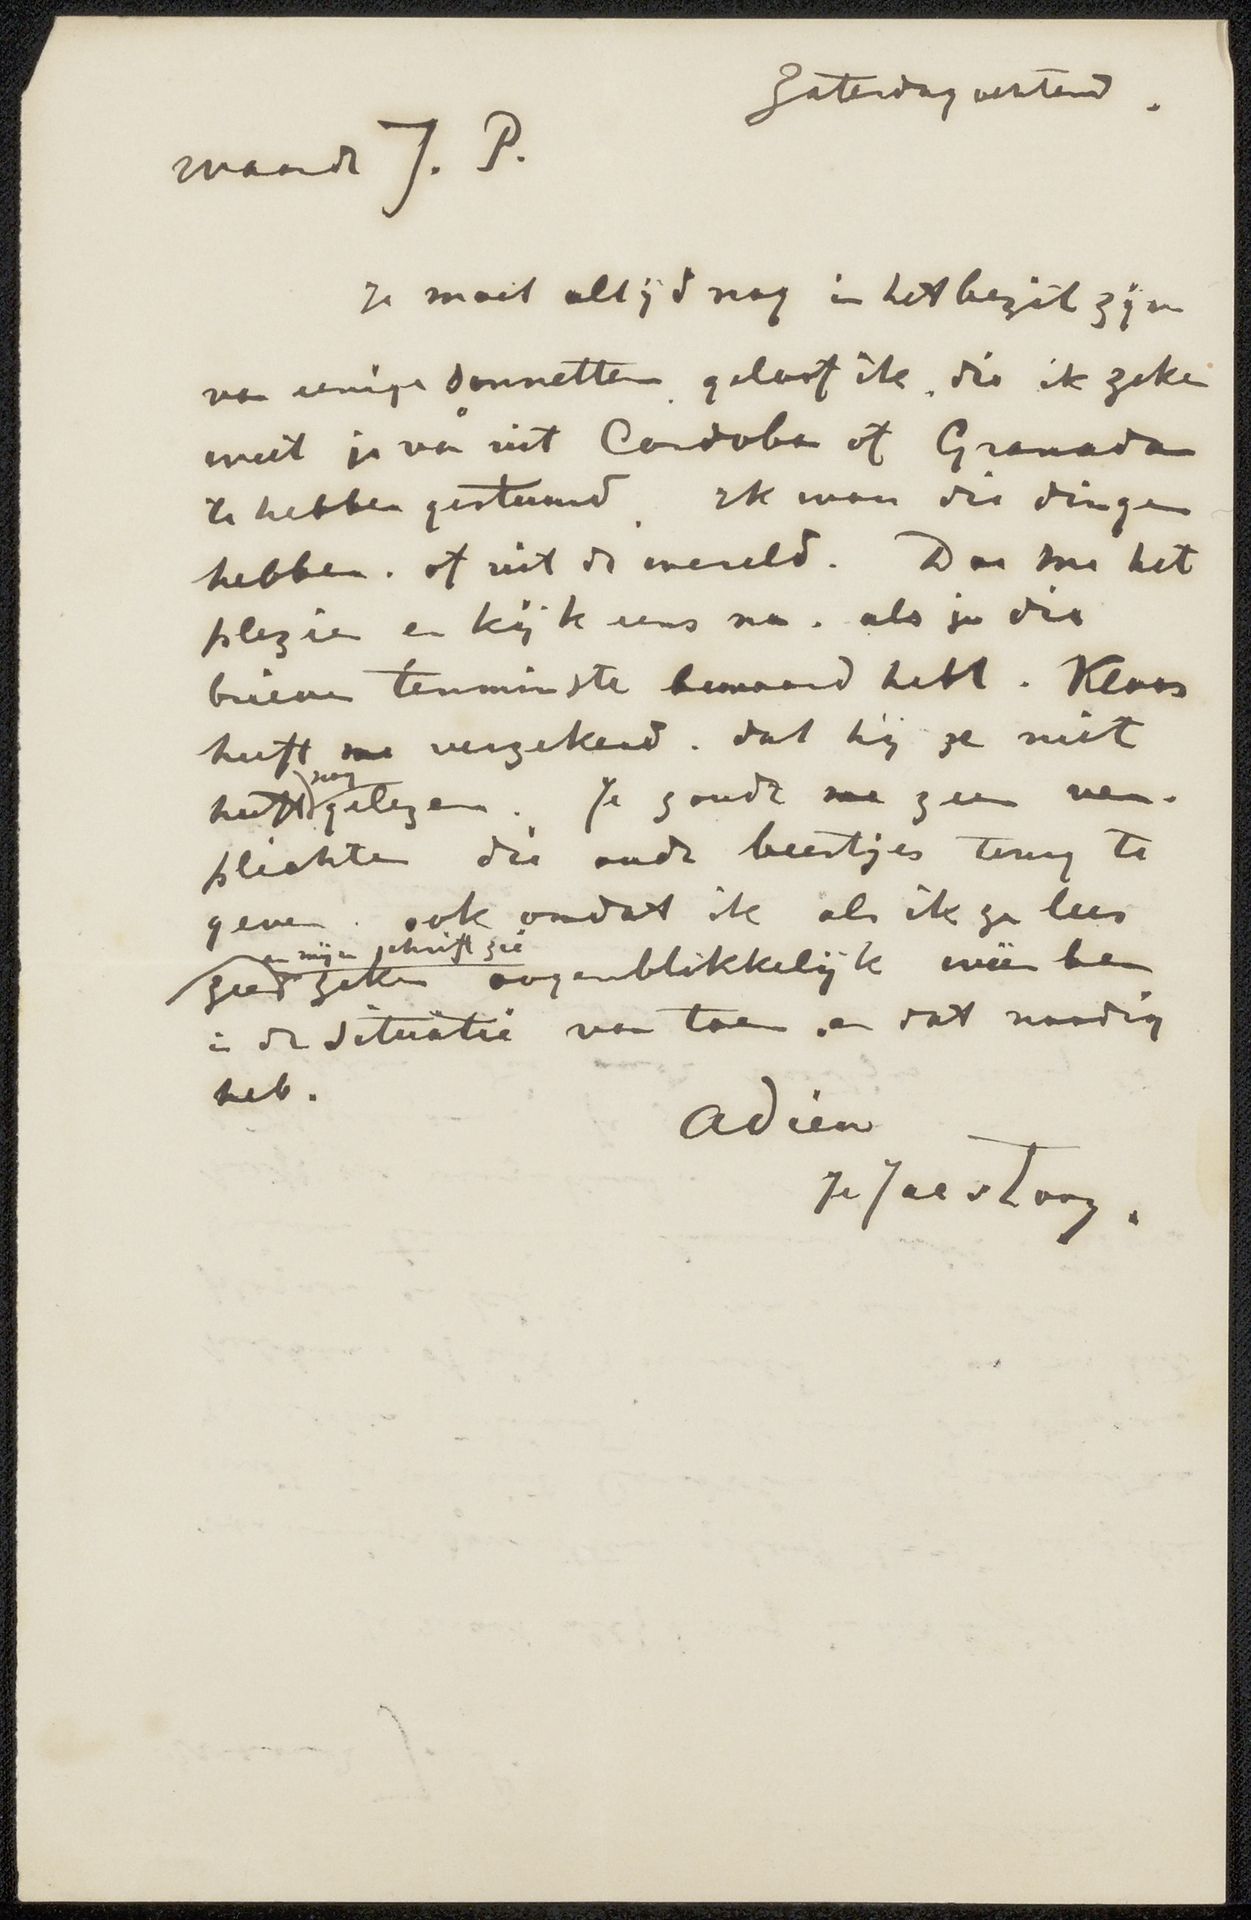 Zaterdag ochtend.
waarde J. P.
Je moet altijd nog in het bezit zijn
van eenige sonnetten, geloof ik, die ik zeker
weet je van uit Cordoba of Granada
te hebben gestuurd. Ik wou die dingen
hebben. of uit de wereld. Doe me het
plezier en kijk eens na. als je die
brieven tenminste bewaard hebt. Kloos
heeft me verzekerd. dat hij ze niet
heeft nog gelezen. Je zoudt me zeer ver-
plichten die oude beestjes terug te
geven. ook omdat ik als ik ze lees
en mijn schrift zie
zeer zeker oogenblikkelijk weer ben
in de situatie van toen en dat noodig
heb.
Adieu
Je Jac v Looy.